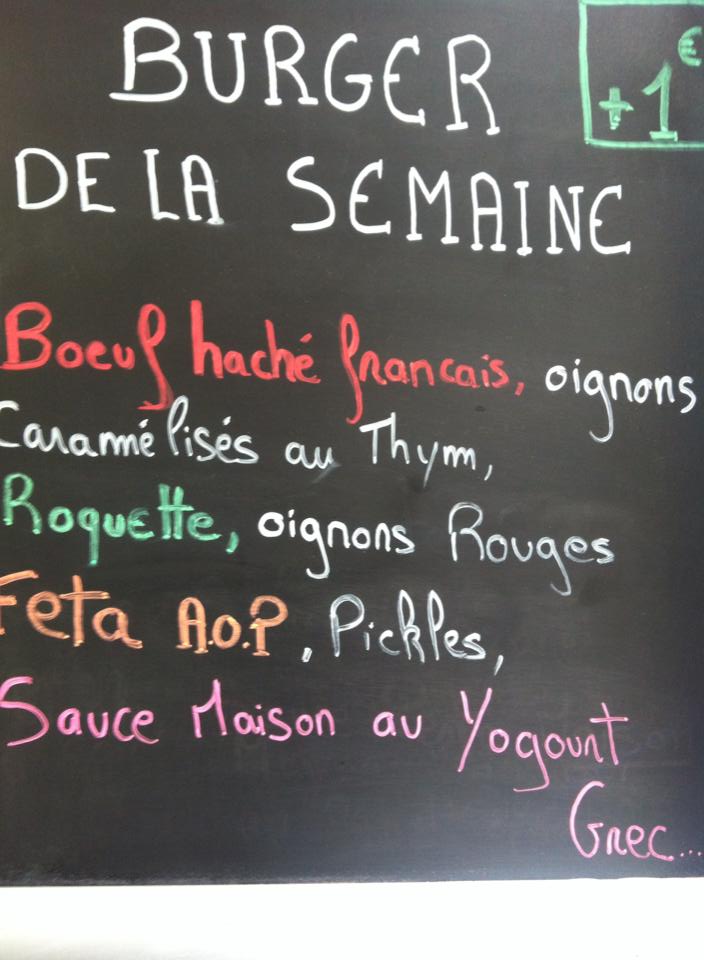 BURGER
+1€
DE LA SEMAINE
Boeuf haché francais, oignons
Caramélisés au Thym,
Roquette, oignons Rouges
Feta A.O.P, Pickles,
Sauce Maison au Yogourt
Grec...